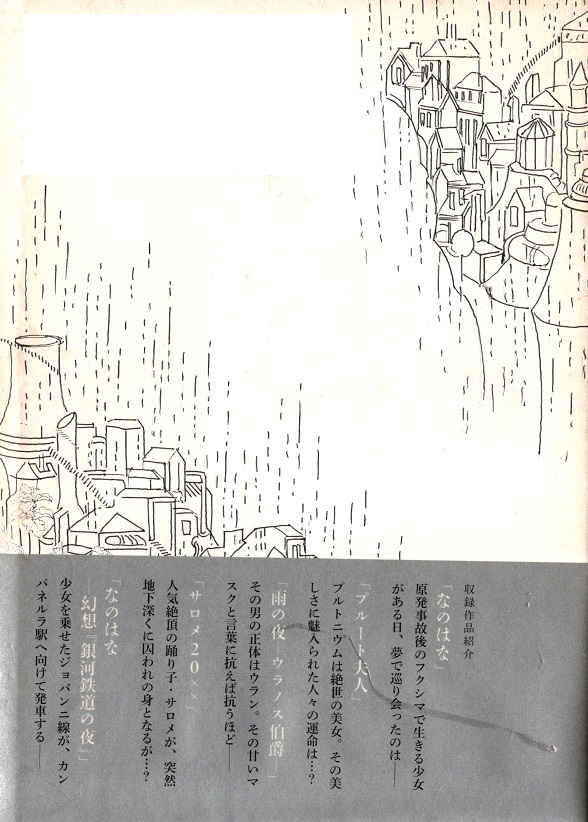 収録作品紹介
「なのはな」
原発事故後のフクシマで生きる少女
がある日、夢で巡り会ったのは──
「プルート夫人」
プルトニウムは絶世の美女。その美
しさに魅入られた人々の運命は…?
「雨の夜─ウラノス伯爵─」
その男の正体はウラン。その甘いマ
スクと言葉に抗えば抗うほど─
「サロメ20××」
人気絶頂の踊り子・サロメが、突然
地下深くに囚われの身となるが…?
「なのはな
─幻想『銀河鉄道の夜』」
少女を乗せたジョバンニ線が、カン
パネルラ駅へ向けて発車する──